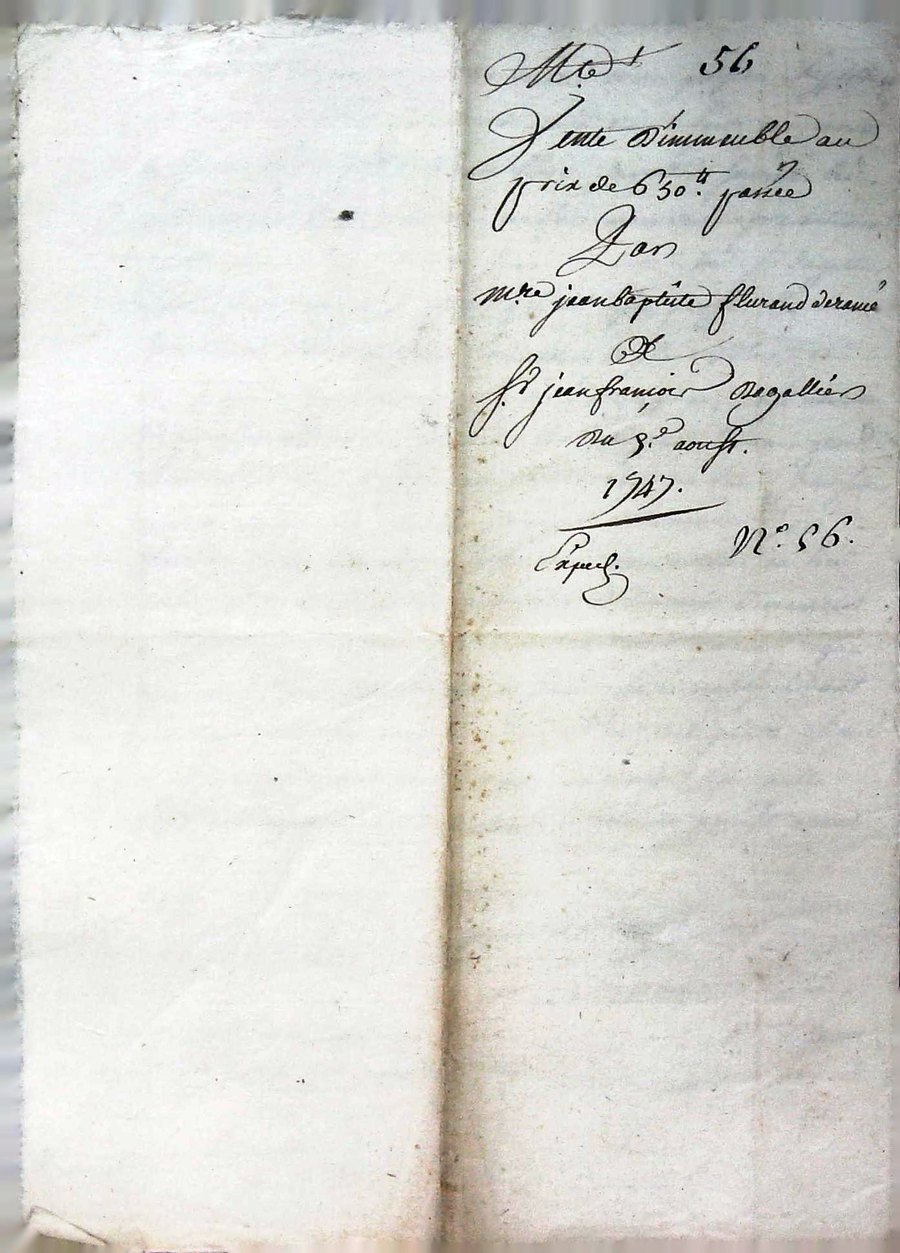 56
Vente d'immeuble au
prix de 650 ₶. passée
Par
mre jean baptiste flurand
A
Sr jean françois Ragallier
Du 5.e aoust.
1747.
No. 56.
Exped.